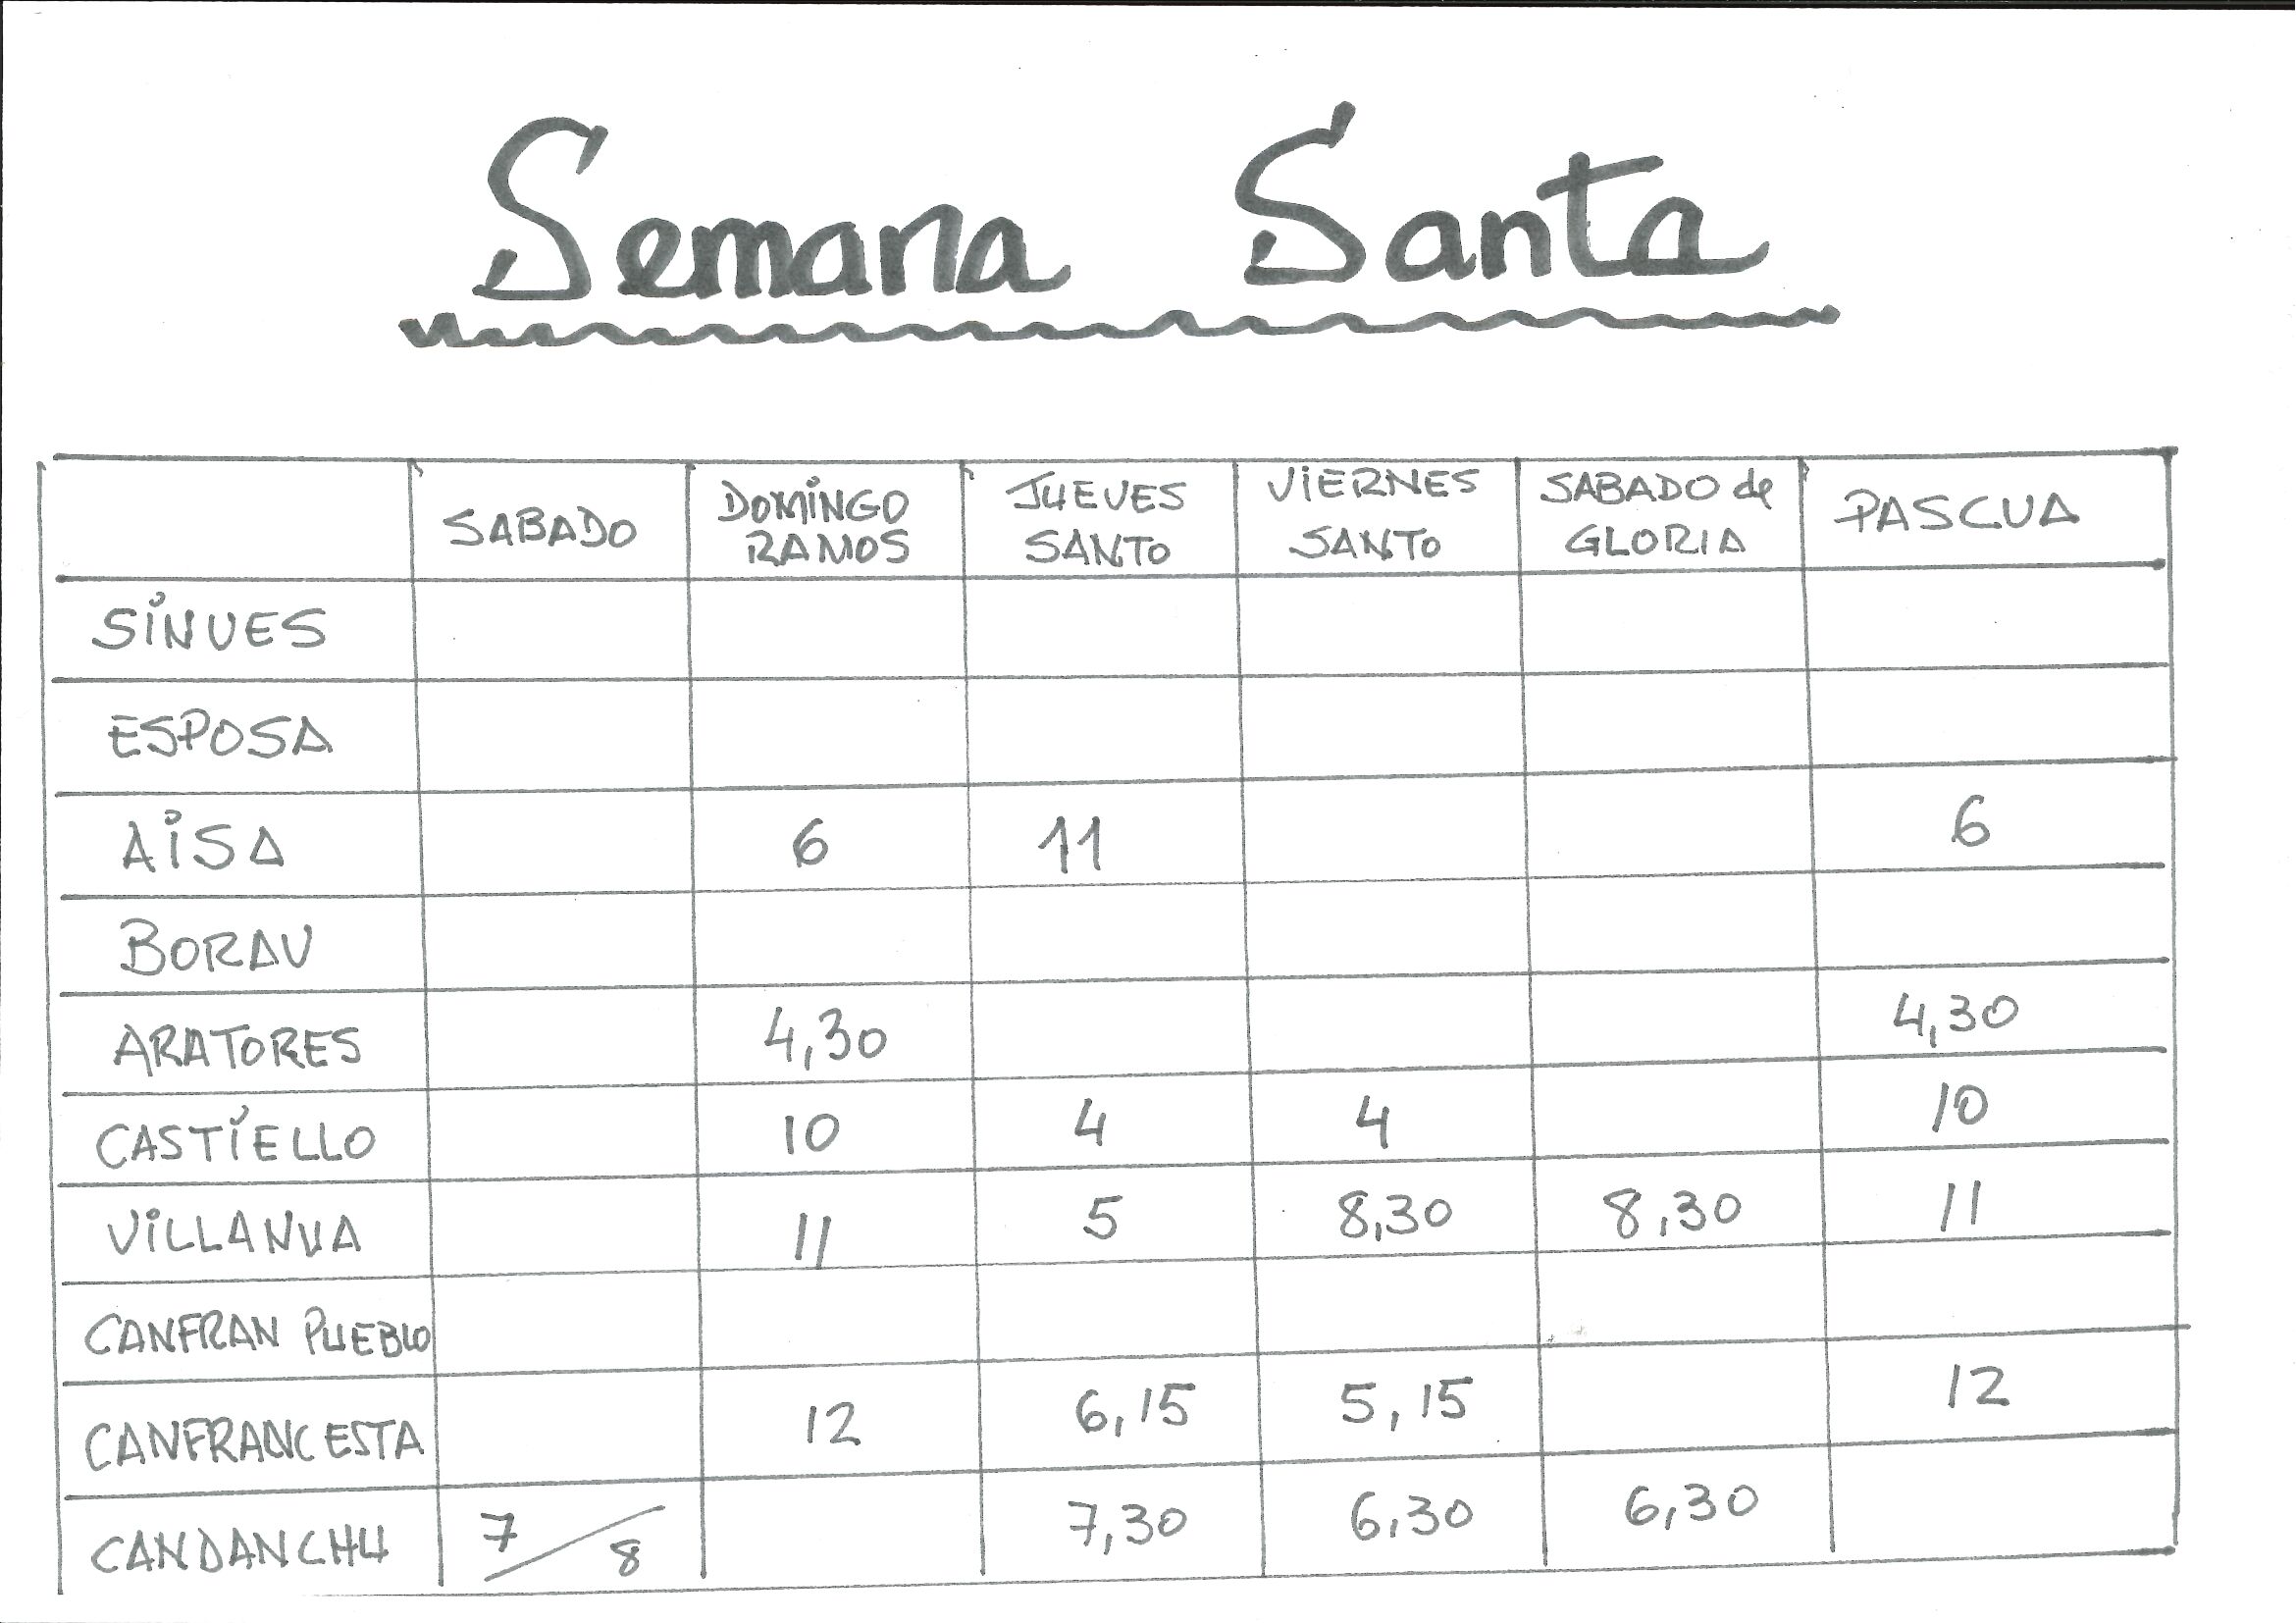 Semana Santa
SABADO DOMINGO RAMOS JUEVES SANTO VIERNES SANTO SABADO de GLORIA PASCUA
SINUES
ESPOSA
AISA 6 11 6
BORAU
ARATORES 4,30 4,30
CASTIELLO 10 4 4 10
VILLANUA 11 5 8,30 8,30 11
CANFRAN PUEBLO
CANFRANC ESTA 12 6,15 5,15 12
CANDANCHU 7/8 7,30 6,30 6,30